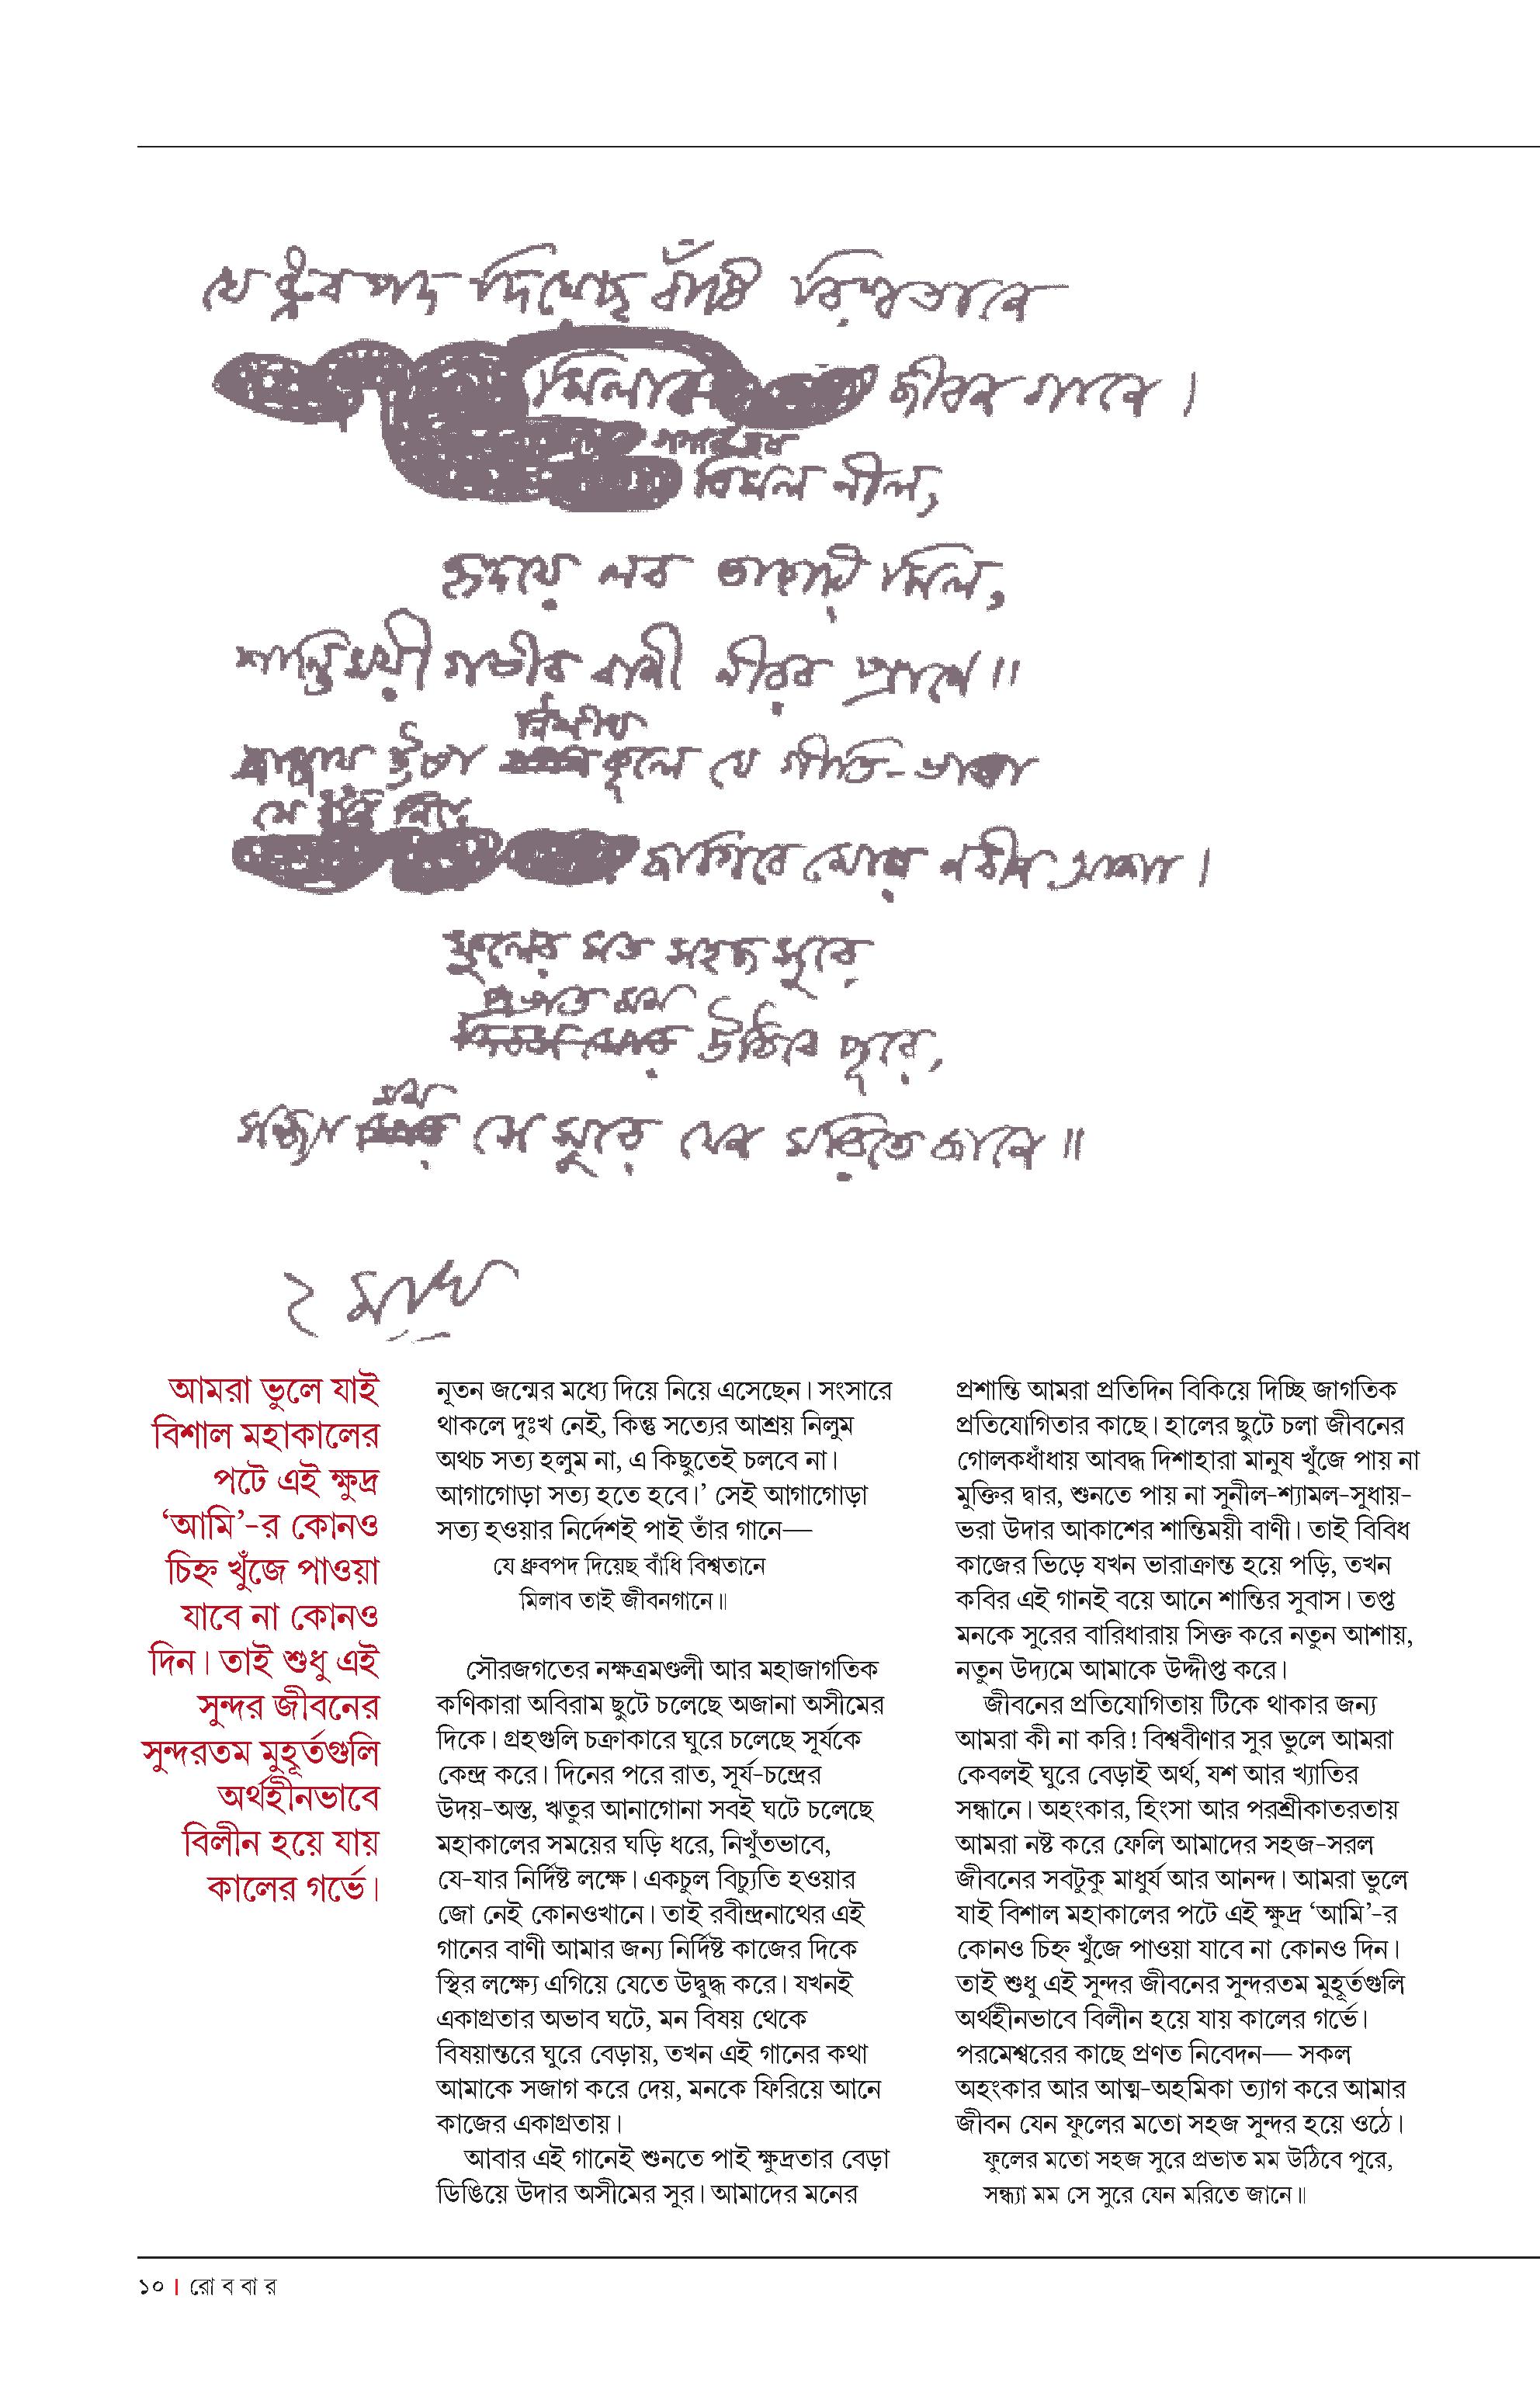 যে ধ্রুবপদ দিয়েছ বাঁধি বিশ্বতানে
মিলাব জীবন গানে।
গগনে তব
বিমল নীল,
হৃদয়ে লব তাহারি মিল,
শান্তিময়ী গভীর বাণী নীরব প্রাণে॥
নিশীথ
বাজায় ঊষা কূলে যে গীতি-ভাষা
সে ধ্বনি নিয়ে
জাগিবে মোর নবীন আশা।
ফুলের মত সহজ সুরে
প্রভাত মম
উঠিবে পূরে,
মম
সন্ধ্যা সে সুরে যেন মরিতে জানে॥
২ মাঘ
আমরা ভুলে যাই
বিশাল মহাকালের
পটে এই ক্ষুদ্র
‘আমি’-র কোনও
চিহ্ন খুঁজে পাওয়া
যাবে না কোনও
দিন। তাই শুধু এই
সুন্দর জীবনের
সুন্দরতম মুহূর্তগুলি
অর্থহীনভাবে
বিলীন হয়ে যায়
কালের গর্ভে।
নূতন জন্মের মধ্যে দিয়ে নিয়ে এসেছেন। সংসারে
থাকলে দুঃখ নেই, কিন্তু সত্যের আশ্রয় নিলুম
অথচ সত্য হলুম না, এ কিছুতেই চলবে না।
আগাগোড়া সত্য হতে হবে।’ সেই আগাগোড়া
সত্য হওয়ার নির্দেশই পাই তাঁর গানে—
যে ধ্রুবপদ দিয়েছ বাঁধি বিশ্বতানে
মিলাব তাই জীবনগানে॥
সৌরজগতের নক্ষত্রমণ্ডলী আর মহাজাগতিক
কণিকারা অবিরাম ছুটে চলেছে অজানা অসীমের
দিকে। গ্রহগুলি চক্রাকারে ঘুরে চলেছে সূর্যকে
কেন্দ্র করে। দিনের পরে রাত, সূর্য-চন্দ্রের
উদয়-অস্ত, ঋতুর আনাগোনা সবই ঘটে চলেছে
মহাকালের সময়ের ঘড়ি ধরে, নিখুঁতভাবে,
যে-যার নির্দিষ্ট লক্ষে। একচুল বিচ্যুতি হওয়ার
জো নেই কোনওখানে। তাই রবীন্দ্রনাথের এই
গানের বাণী আমার জন্য নির্দিষ্ট কাজের দিকে
স্থির লক্ষ্যে এগিয়ে যেতে উদ্বুদ্ধ করে। যখনই
একাগ্রতার অভাব ঘটে, মন বিষয় থেকে
বিষয়ান্তরে ঘুরে বেড়ায়, তখন এই গানের কথা
আমাকে সজাগ করে দেয়, মনকে ফিরিয়ে আনে
কাজের একাগ্রতায়।
আবার এই গানেই শুনতে পাই ক্ষুদ্রতার বেড়া
ডিঙিয়ে উদার অসীমের সুর। আমাদের মনের
প্রশান্তি আমরা প্রতিদিন বিকিয়ে দিচ্ছি জাগতিক
প্রতিযোগিতার কাছে। হালের ছুটে চলা জীবনের
গোলকধাঁধায় আবদ্ধ দিশাহারা মানুষ খুঁজে পায় না
মুক্তির দ্বার, শুনতে পায় না সুনীল-শ্যামল-সুধায়-
ভরা উদার আকাশের শান্তিময়ী বাণী। তাই বিবিধ
কাজের ভিড়ে যখন ভারাক্রান্ত হয়ে পড়ি, তখন
কবির এই গানই বয়ে আনে শান্তির সুবাস। তপ্ত
মনকে সুরের বারিধারায় সিক্ত করে নতুন আশায়,
নতুন উদ্যমে আমাকে উদ্দীপ্ত করে।
জীবনের প্রতিযোগিতায় টিকে থাকার জন্য
আমরা কী না করি! বিশ্ববীণার সুর ভুলে আমরা
কেবলই ঘুরে বেড়াই অর্থ, যশ আর খ্যাতির
সন্ধানে। অহংকার, হিংসা আর পরশ্রীকাতরতায়
আমরা নষ্ট করে ফেলি আমাদের সহজ-সরল
জীবনের সবটুকু মাধুর্য আর আনন্দ। আমরা ভুলে
যাই বিশাল মহাকালের পটে এই ক্ষুদ্র ‘আমি’-র
কোনও চিহ্ন খুঁজে পাওয়া যাবে না কোনও দিন।
তাই শুধু এই সুন্দর জীবনের সুন্দরতম মুহূর্তগুলি
অর্থহীনভাবে বিলীন হয়ে যায় কালের গর্ভে।
পরমেশ্বরের কাছে প্রণত নিবেদন— সকল
অহংকার আর আত্ম-অহমিকা ত্যাগ করে আমার
জীবন যেন ফুলের মতো সহজ সুন্দর হয়ে ওঠে।
ফুলের মতো সহজ সুরে প্রভাত মম উঠিবে পূরে,
সন্ধ্যা মম সে সুরে যেন মরিতে জানে॥
১০ | রোববার